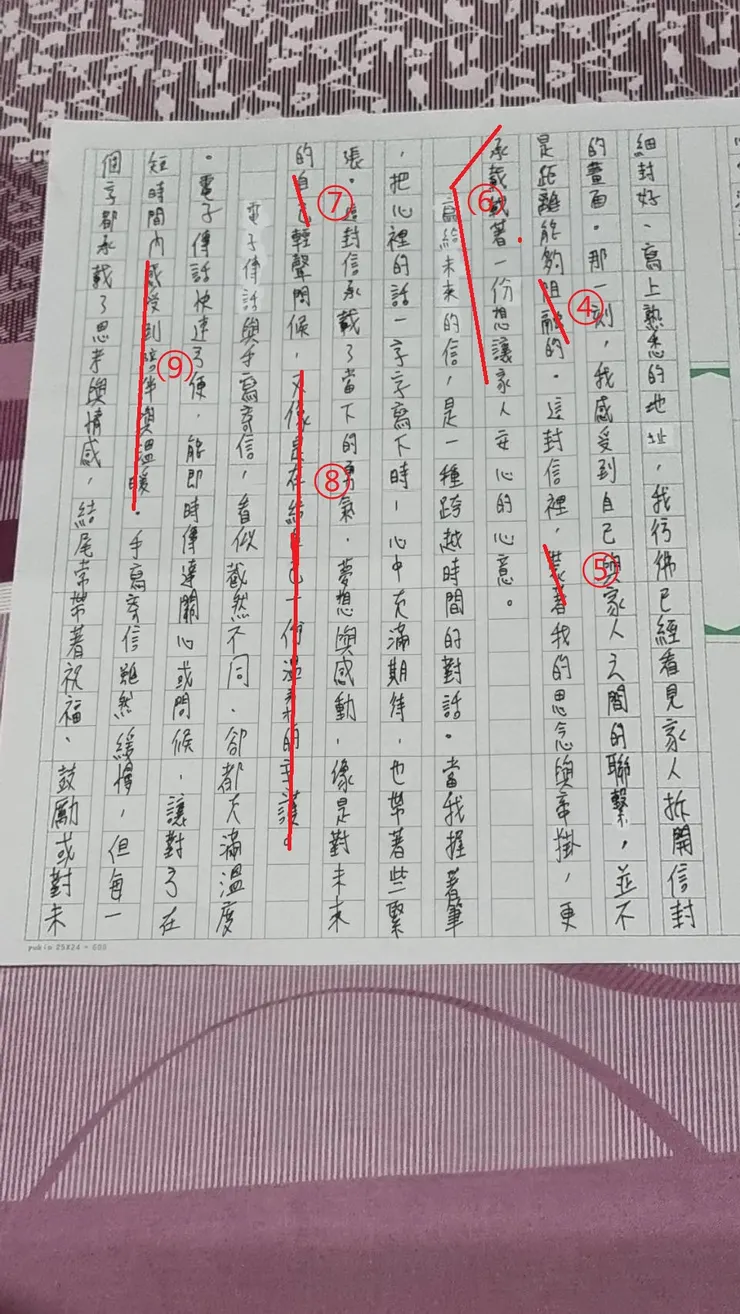 細封好、寫上熟悉的地址，我彷彿已經看見家人拆開信封
的畫面。那一刻，我感受到自己與家人之間的聯繫，並不
是距離能夠阻融的。這封信裡，裝著我的思念與牽掛，更
承載載著一份想讓家人安心的心意。
寫給未來的信，是一種跨越時間的對話。當我握著筆
，把心裡的話一字字寫下時，心中充滿期待，也帶著些緊
張。這封信承載了當下的勇氣、夢想與感動，像是對未來
的自己輕聲問候，又像是在給自己一份溫柔的守護。
電子傳話與手寫寄信，看似截然不同，卻都充滿溫度
。電子傳話快速方便，能即時傳達關心或問候，讓對方在
短時間內感受到 溫暖。手寫寄信雖然緩慢，但每一
個字都承載了思考與情感，結尾常帶著祝福、鼓勵或對未
④
⑤
⑥
⑦
⑧
⑨
25X24 = 600